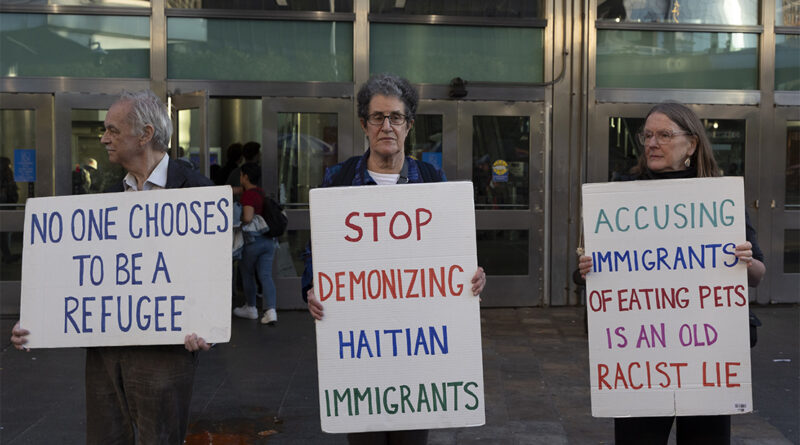 NO ONE CHOOSES
TO BE A
REFUGEE
STOP
DEMONIZING
HAITIAN
IMMIGRANTS
ACCUSING
IMMIGRANTS
OF EATING PETS
IS AN OLD
RACIST LIE